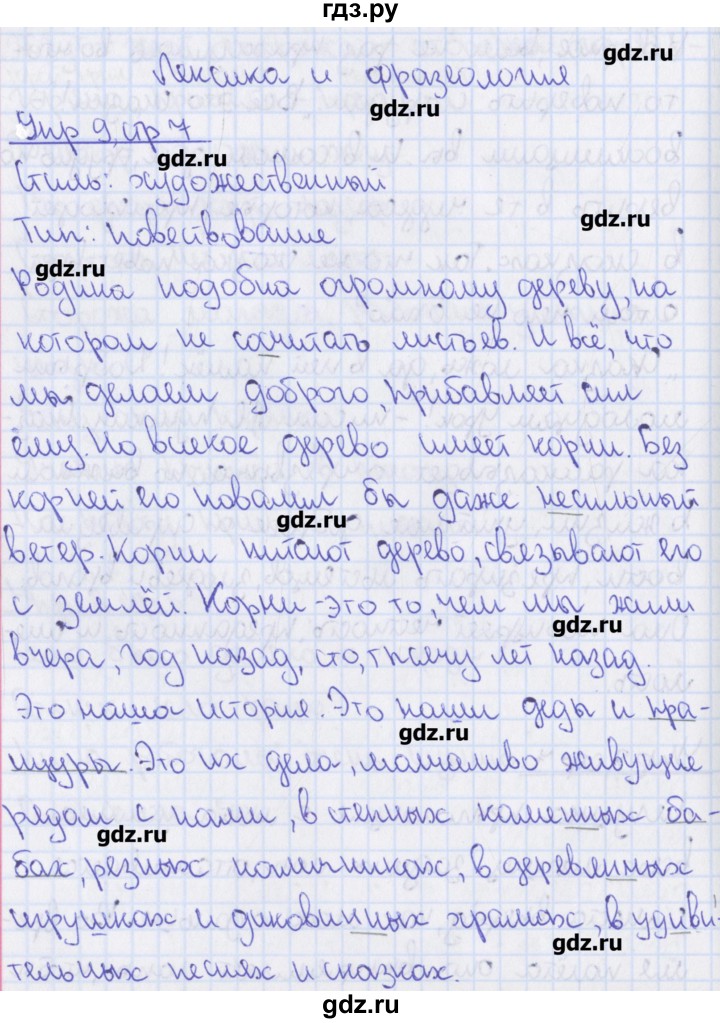 гдз.ру
gdz.ru
Лексика и фразеология
gdz.ru
Упр 9, стр 7
gdz.ru
Стиль: художественный
gdz.ru
Тип: повествование
gdz.ru
Родина подобна огромному дереву, на
котором не сочитать листьев. И всё, что
мы делаем доброго, прибавляет сил
ему. Но всякое дерево имеет корни. Без
корней его повалил бы даже несильный
gdz.ru
ветер. Корни питают дерево, связывают его
с землёй. Корни - это то, чем мы жили
gdz.ru
вчера, год назад, сто, тысячу лет назад.
Это наша история. Это наши деды и пра-
gdz.ru
щуры. Это их дела, молчаливо живущие
рядом с нами, в степных каменных ба-
gdz.ru
бах, резных наличниках, в деревянных
игрушках и диковинных храмах, в удиви-
gdz.ru
тельных песнях и сказках.
gdz.ru